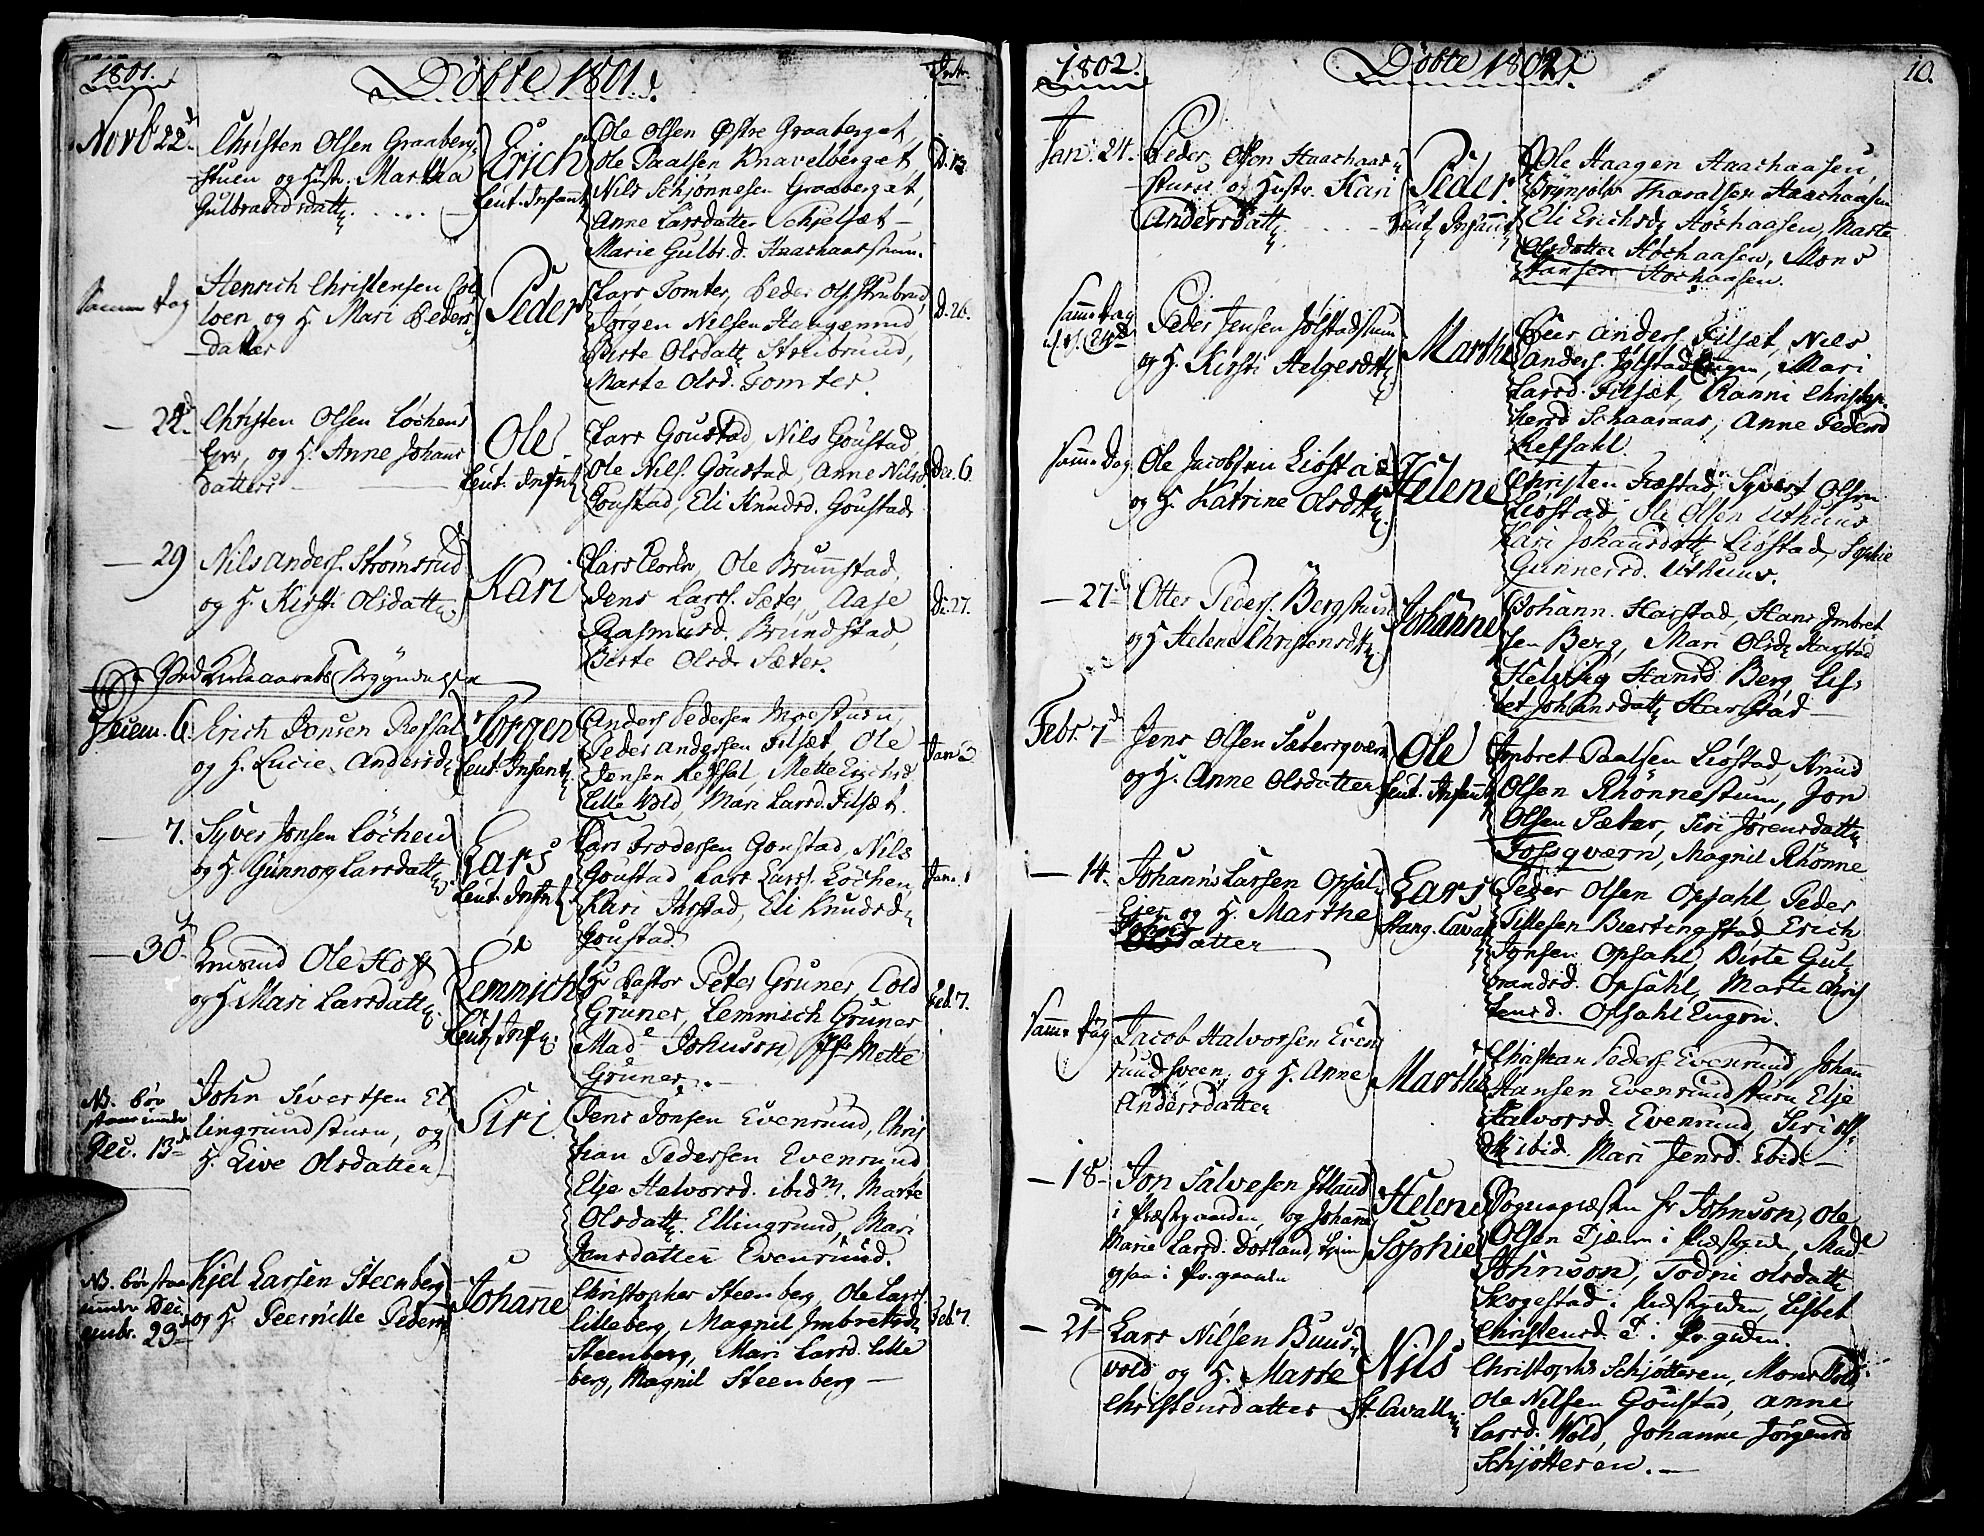 1801.
Döbte 1801.
Intr.
Novb 22d
Christen Olsen Graaberg-
stuen og Hustr. Martha
Gulbrandsdatter
Erich
Leut. Infant
Ole Olsen Østre Graaberget,
Ole Paalsen Knavelberget
Nils Schjønnesen Graaberget,
Anne Larsdatter Schjelset
Marie Gulbr.d. Haarhaarstuen.
D. 13
Samme Dag
Henrich Christensen
loen og H. Mari Peders
datter
Peder
Lars Tomter, Peder Ols. Strubrud,
Jørgen Nilsen Haugerrud,
Birte Olsdatt Strubrud,
Marte Olsd. Tomter.
D. 26.
— 24d
Christen Olsen Löchens
Eyer, og H. Anne Johans
datter
Ole
Leut. Infnt
Lars Goustad, Nils Goustad,
Ole Nils. Goustad, Anne Nilsd
Goustad, Eli Knudsd. Goustad.
De. 6
— 29
Nils Anders. Strömsrud
og H. Kirsti Olsdatter
Kari
Lars Klocker, Ole Brunstad,
Jens Larss. Sæter, Aase
Rasmusd. Brundstad,
Birte Olsd. Sæter.
D. 27.
Ved Kirkeaarets Begyndelse
Decem. 6.
Erich Jonsen Refsal
og H. Lucie Andersd
Jörgen
Leut. Infant
Anders Pedersen Moestuen,
Peder Andersen Filset, Ole
Jensen Refsal, Mette Erichsd
Lille Wold, Mari Larsd. Filset
Jan. 3
— 7.
Syver Jonsen Löchen
og H. Gunnor Larsdatter
Lars
Leut. Infnt
Lars Frodersen Goustad, Nils
Goustad, Lars Larss. Löchen,
Kari Jerstad, Eli Knudsd
Goustad.
Jan. 1
— 30
Ole Hoff
og H. Mari Larsdatter
Lemmich
Leut. Inf.
Hr Pastor Peter Gruner, Cold
Gruner, Lemmich Gruner
Made Johnson, Jfr Mette
Gruner. —
Feb. 7.
NB. bör
staae under
Dec. 13de
John Sivertsen El-
lingrundstuen, og
H. Live Olsdatter
Siri
Jens Jonsen Evenrund, Chris
tian Pedersen Evenrund
Elje Halvorsd. ibidm. Marte
Olsdatt. Ellingrund, Mari
Jensdatter Evenrund.
NB. bör staae
under Dec
embr. 29
Kjel Larsen Steenberg
og H. Peernille Peders
Johanne
Christopher Steenberg, Ole Lars
Lilleberg, Magnil Imbretsd
Steenberg, Mari Larsd. Lille
berg, Magnil Steenberg —
Feb. 7.
1802.
Döbte 1802.
10.
Jan. 24.
Peder Olsen Haarhaar-
stuen og Hustr. Kari
Andersdatt
Peder.
Leut. Infant
Ole Haagen Haarhaasen,
Brynjolv Tharalsen Haarhaasen
Eli Erichsd. Höchaasen, Marte
Olsdatter Höchaasen, Mons
Hansen Höchaasen.
Samme Dag
Peder Jensen Jölstadstuen
og H. Kirsti Helgesdtt
Marthe
Peer Anders. Filset, Nils
Anders. Jölstad Engen, Mari
Larsd. Filset, Ranni Christop-
hersd Schaaraas, Anne Pedersd
Refsahl.
Samme Dag
Ole Jacobsen Liöstad
og H. Katrine Olsdtt
Helene
Christen Fæstad, Syvert Olsen
Liöstad, Ole Olsen Uthuus
Kari Johansdatt Liöstad, Sophie
Gunnersd. Uthuus.
— 27.
Otter Peders. Bergstuen
og H Helene Christensdtt
Johanne
Johann. Harstad, Hans Imbret
sen Berg, Mari Olsd. Harstad
Helvig Hansd. Berg Lis-
bet Johansdatt Harstad —
Febr. 7d
Jens Olsen Sæterqværn
og H. Anne Olsdatter
Ole
Leut. Infant
Imbret Paalsen Liöstad, Knud
Olsen Rhönnestuen, Jon
Olsen Sæter, Siri Jörensdatt
Fossqværn, Magnil Rhönne
— 14.
Johannes Larsen Opsal-
Eyer og H. Marthe
Olsdatter
Lars
Stang. Cavall
Peder Olsen Opsahl Peder
Tillesen Bierting stad Erich
Jonsen Opsahl, Birte Gul-
brandsd. Opsahl, Marte Chris
tensd. Opsahl Engen.
Samme Dag
Jacob Halvorsen Even
rundsveen og H. Anne
Andersdatter
Marthe
Christian Peders. Evenrund Johan
Hansen Evenrundstuen Elje
Halvorsd. Evenrund, Siri Ols
dtt ibid. Mari Jensd. ibid. —
— 18 —
Jon Salvesen Jtland
i Præstgaarden, og Johanne
Marie Larsd. Dotland,
ogsaa i Pr. gaarden
Helene
Sophie
Sogneprästen Hr Johnson, Ole
Olsen Tjæner i Præstgrden, Made
Johnson, Todni Olsdatt
Skogestad i Præstgrden, Lisbet
Christensd. T. i Pr. gården.
— 21
Lars Nilsen Buus-
vold og H. Marte
Christensdatter
Nils
St. Cavall
Christopher Schjötteren, Mons Vold,
Ole Nilsen Goustad, Anne
Larsd. Wold, Johanne Jörgensd
Schjötteren. —